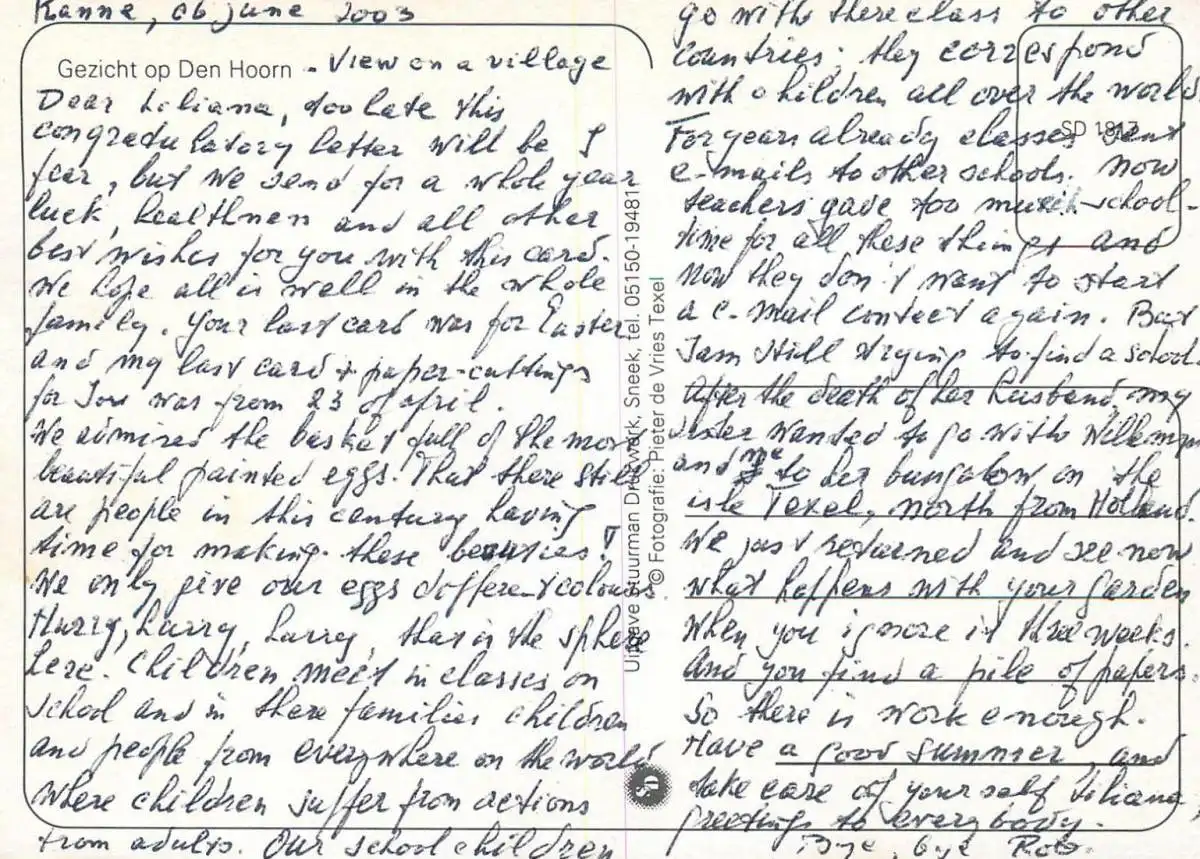 Kanne, 06 june 2003
Gezicht op Den Hoorn - View on a village
Dear Liliana, too late this
congratulatory letter will be I
fear, but we send for a whole year
luck, healthnen and all other
best wishes for you with this card.
We hope all is well in the whole
family. Your last card was for Easter
and my last card + paper-cuttings
for was from 23 of april.
We admired the basket full of the most
beautiful painted eggs. That there still
are people in this century having
time for making these beauties!
We only give our eggs different colours.
Hurry, hurry, hurry, that is the sphere
here. Children meet in classes on
school and in there families children
and people from everywhere on the world
where children suffer from actions
from adults. Our school children
go with there class to other
countries; they correspond
with children all over the world
For years already classes sent
e-mails to other schools. Now
teachers gave too much school-
time for all these things and
now they don't want to start
a e-mail contect again. But
I am still trying to find a school.
After the death of her husband, my
sister wanted to go with
and me to her bungalow on the
isle Texel, north from Holland.
We just returned and see now
what heppens with your garden
when you ignore it three weeks.
And you find a pile of papers.
So there is work enough.
Have a good summer, and
take care of your self Liliana
greetings to everybody.
Bye, bye Rob.
SD 1817
Uitgave Stuurman Drukwerk, Sneek, tel. 05150-19481
© Fotografie: Pieter de Vries Texel
SD